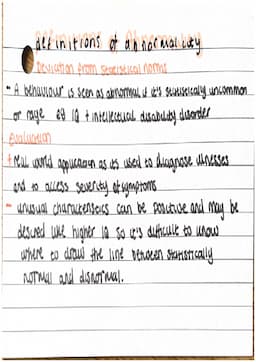 definitions of abnormality
Deviation from statistical norms
- A behaviour is seen as abnormal if it's statistically uncommon
or rage eg IQ + intellectual disability disorder
Evaluation
+ real world application as its used to diagnose illnesses
and to access severity of symptoms
- unusual characteristics can be positive and may be
desired like higher IQ so it's difficult to know
where to draw the line between statistically
normal and disnormal.